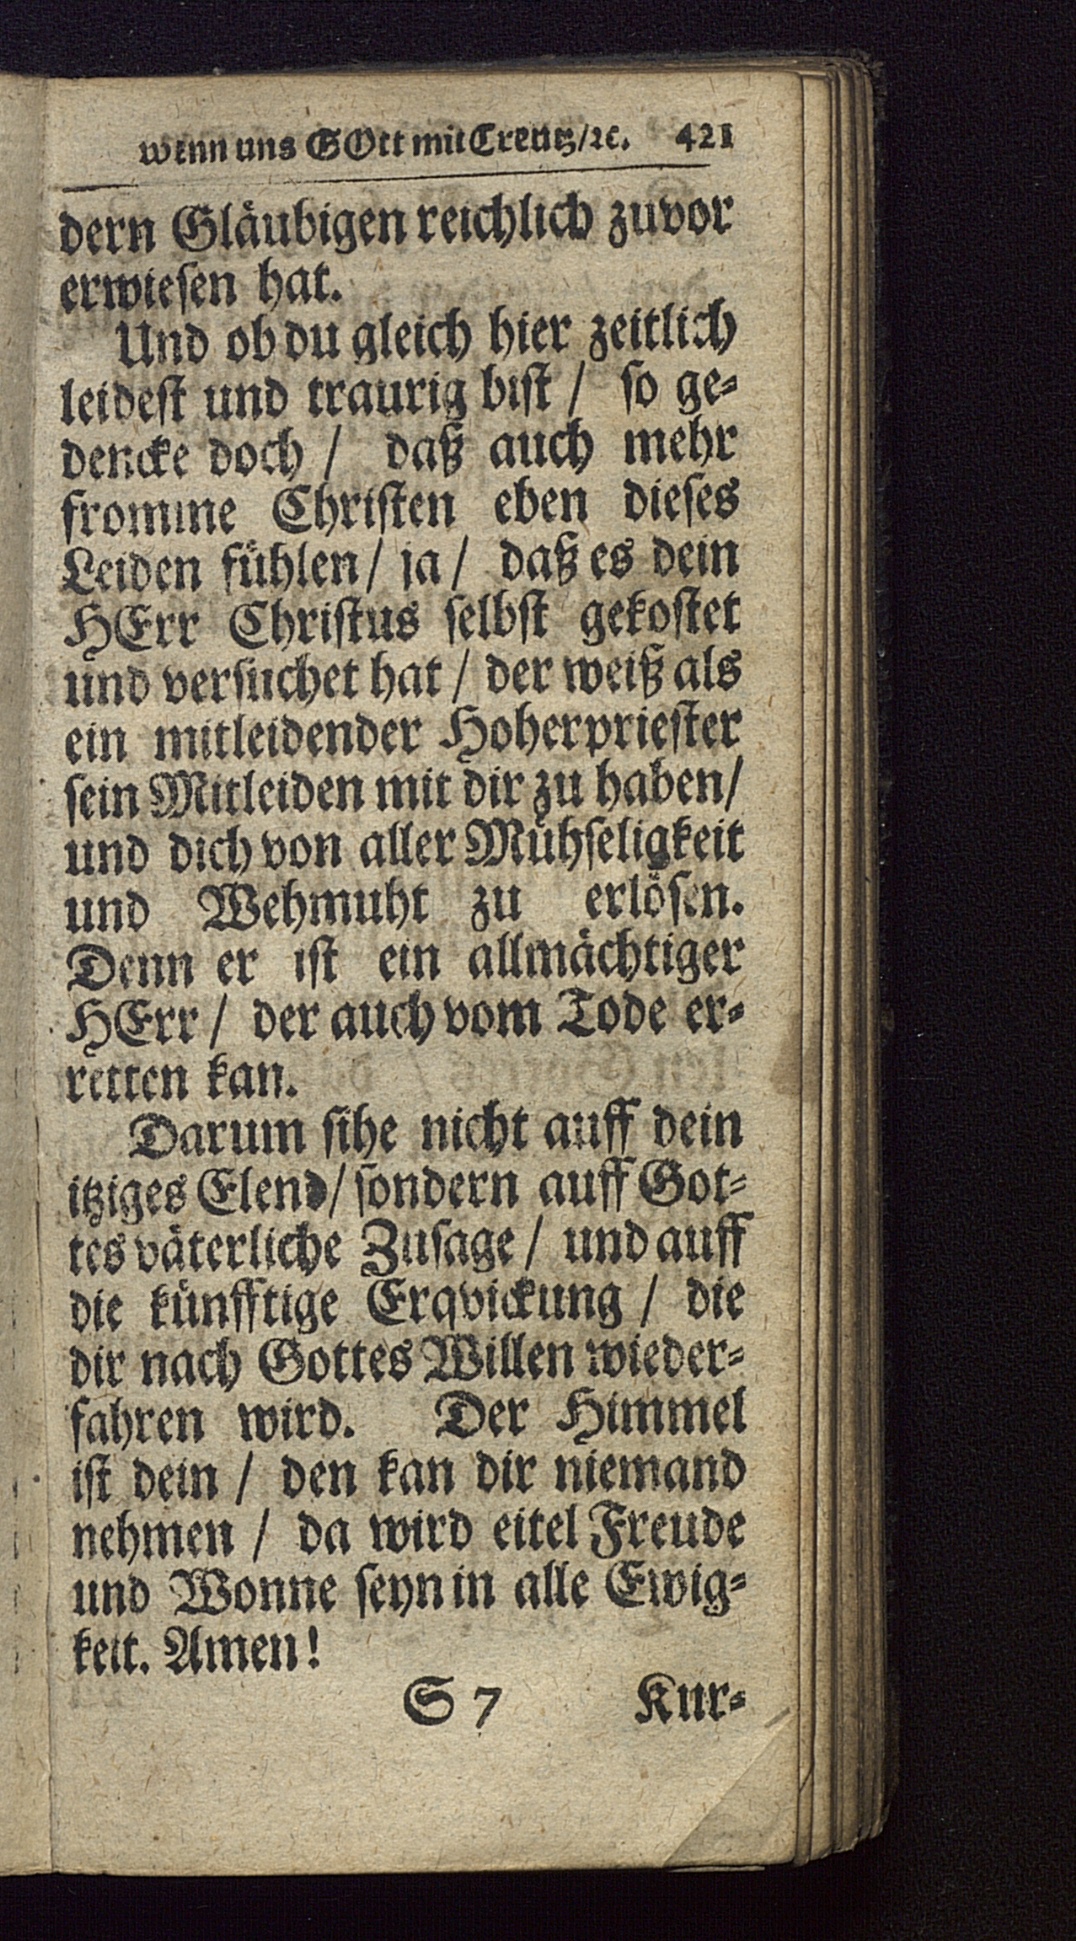 wenn uns GOtt mit Creutz/ꝛc. 421
dern Gläubigen reichlich zuvor
erwiesen hat.
Und ob du gleich hier zeitlich
leidest und traurig bist / so ge-
dencke doch / daß auch mehr
fromme Christen eben dieses
Leiden fühlen/ ja / daß es dein
HErr Christus selbst gekostet
und versuchet hat / der weiß als
ein mitleidender Hoherpriester
sein Mitleiden mit dir zu haben/
und dich von aller Mühseligkeit
und Wehmuht zu erlösen.
Denn er ist ein allmächtiger
HErr / der auch vom Tode er-
retten kan.
Darum sihe nicht auff dein
itziges Elend/ sondern auff Got-
tes väterliche Zusage / und auff
die künfftige Erqvickung / die
dir nach Gottes Willen wieder-
fahren wird. Der Himmel
ist dein / den kan dir niemand
nehmen / da wird eitel Freude
und Wonne seyn in alle Ewig-
keit. Amen!
S 7 Kur-